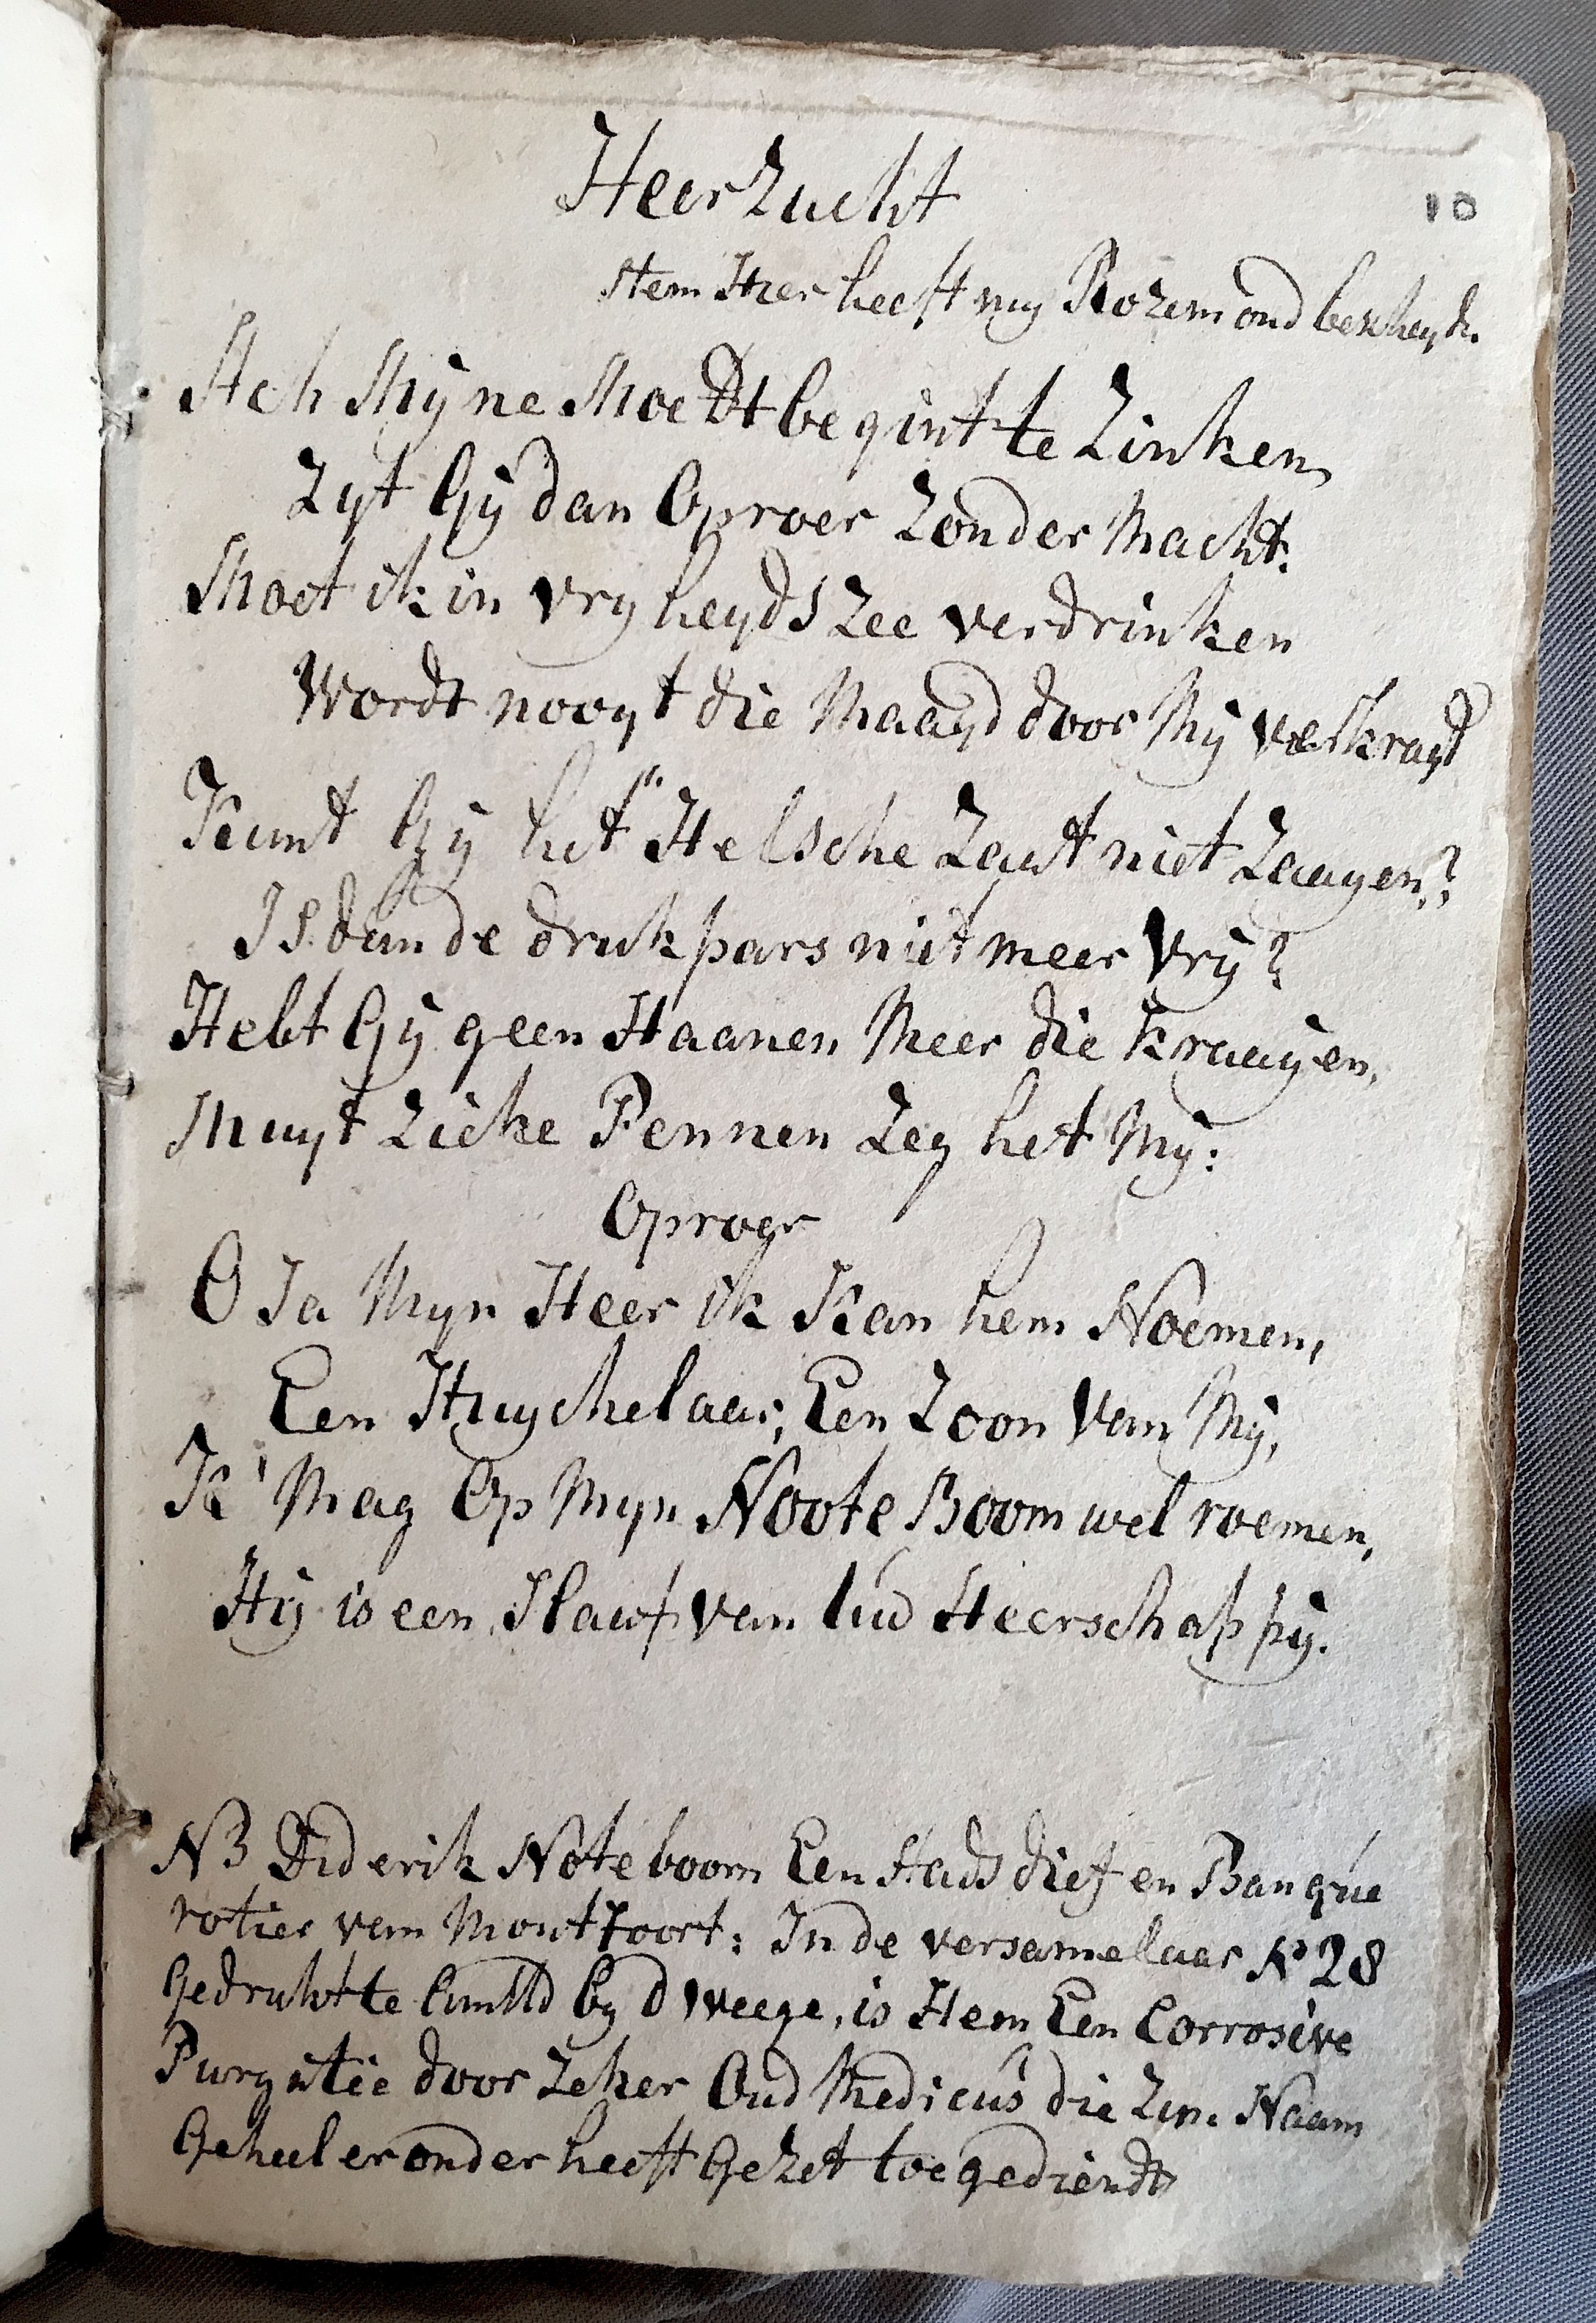 HeerZucht
10
Stem Hier heeft my Rozemond bescheyd.
Ach Myne Moedt begint te Zinken,
Zyt Gij dan Oproer Zonder Macht.
Moet ik in vryheyds Zee verdrinken
Wordt nooyt die Maagd door Mij verkragt
Kunt Gij het Helsche Zaat niet Zaayen?
Is dan de drukpars niet meer Vrij?
Hebt Gij geen Haanen Meer die kraayen,
Muyt Zieke Pennen Zeg het Mij:
Oproer
O Ja Myn Heer ik Kan hem Noemen,
Een Huychelaar, Een Zoon van Mij,
K' Mag Op Myn Noote Boom wel roemen,
Hij is een Slaaf van Uw Heerschappij.
NB Diderik Noteboom Een Stads dief en Banque
rotier van Montfoort: In de versamelaar No 28
Gedrukt te by d Weege, is Hem Een Corrosive
Purgatie door Zeker Oud Medicus die Zyn Naam
Geheel er onder heeft Gezet toegediendt